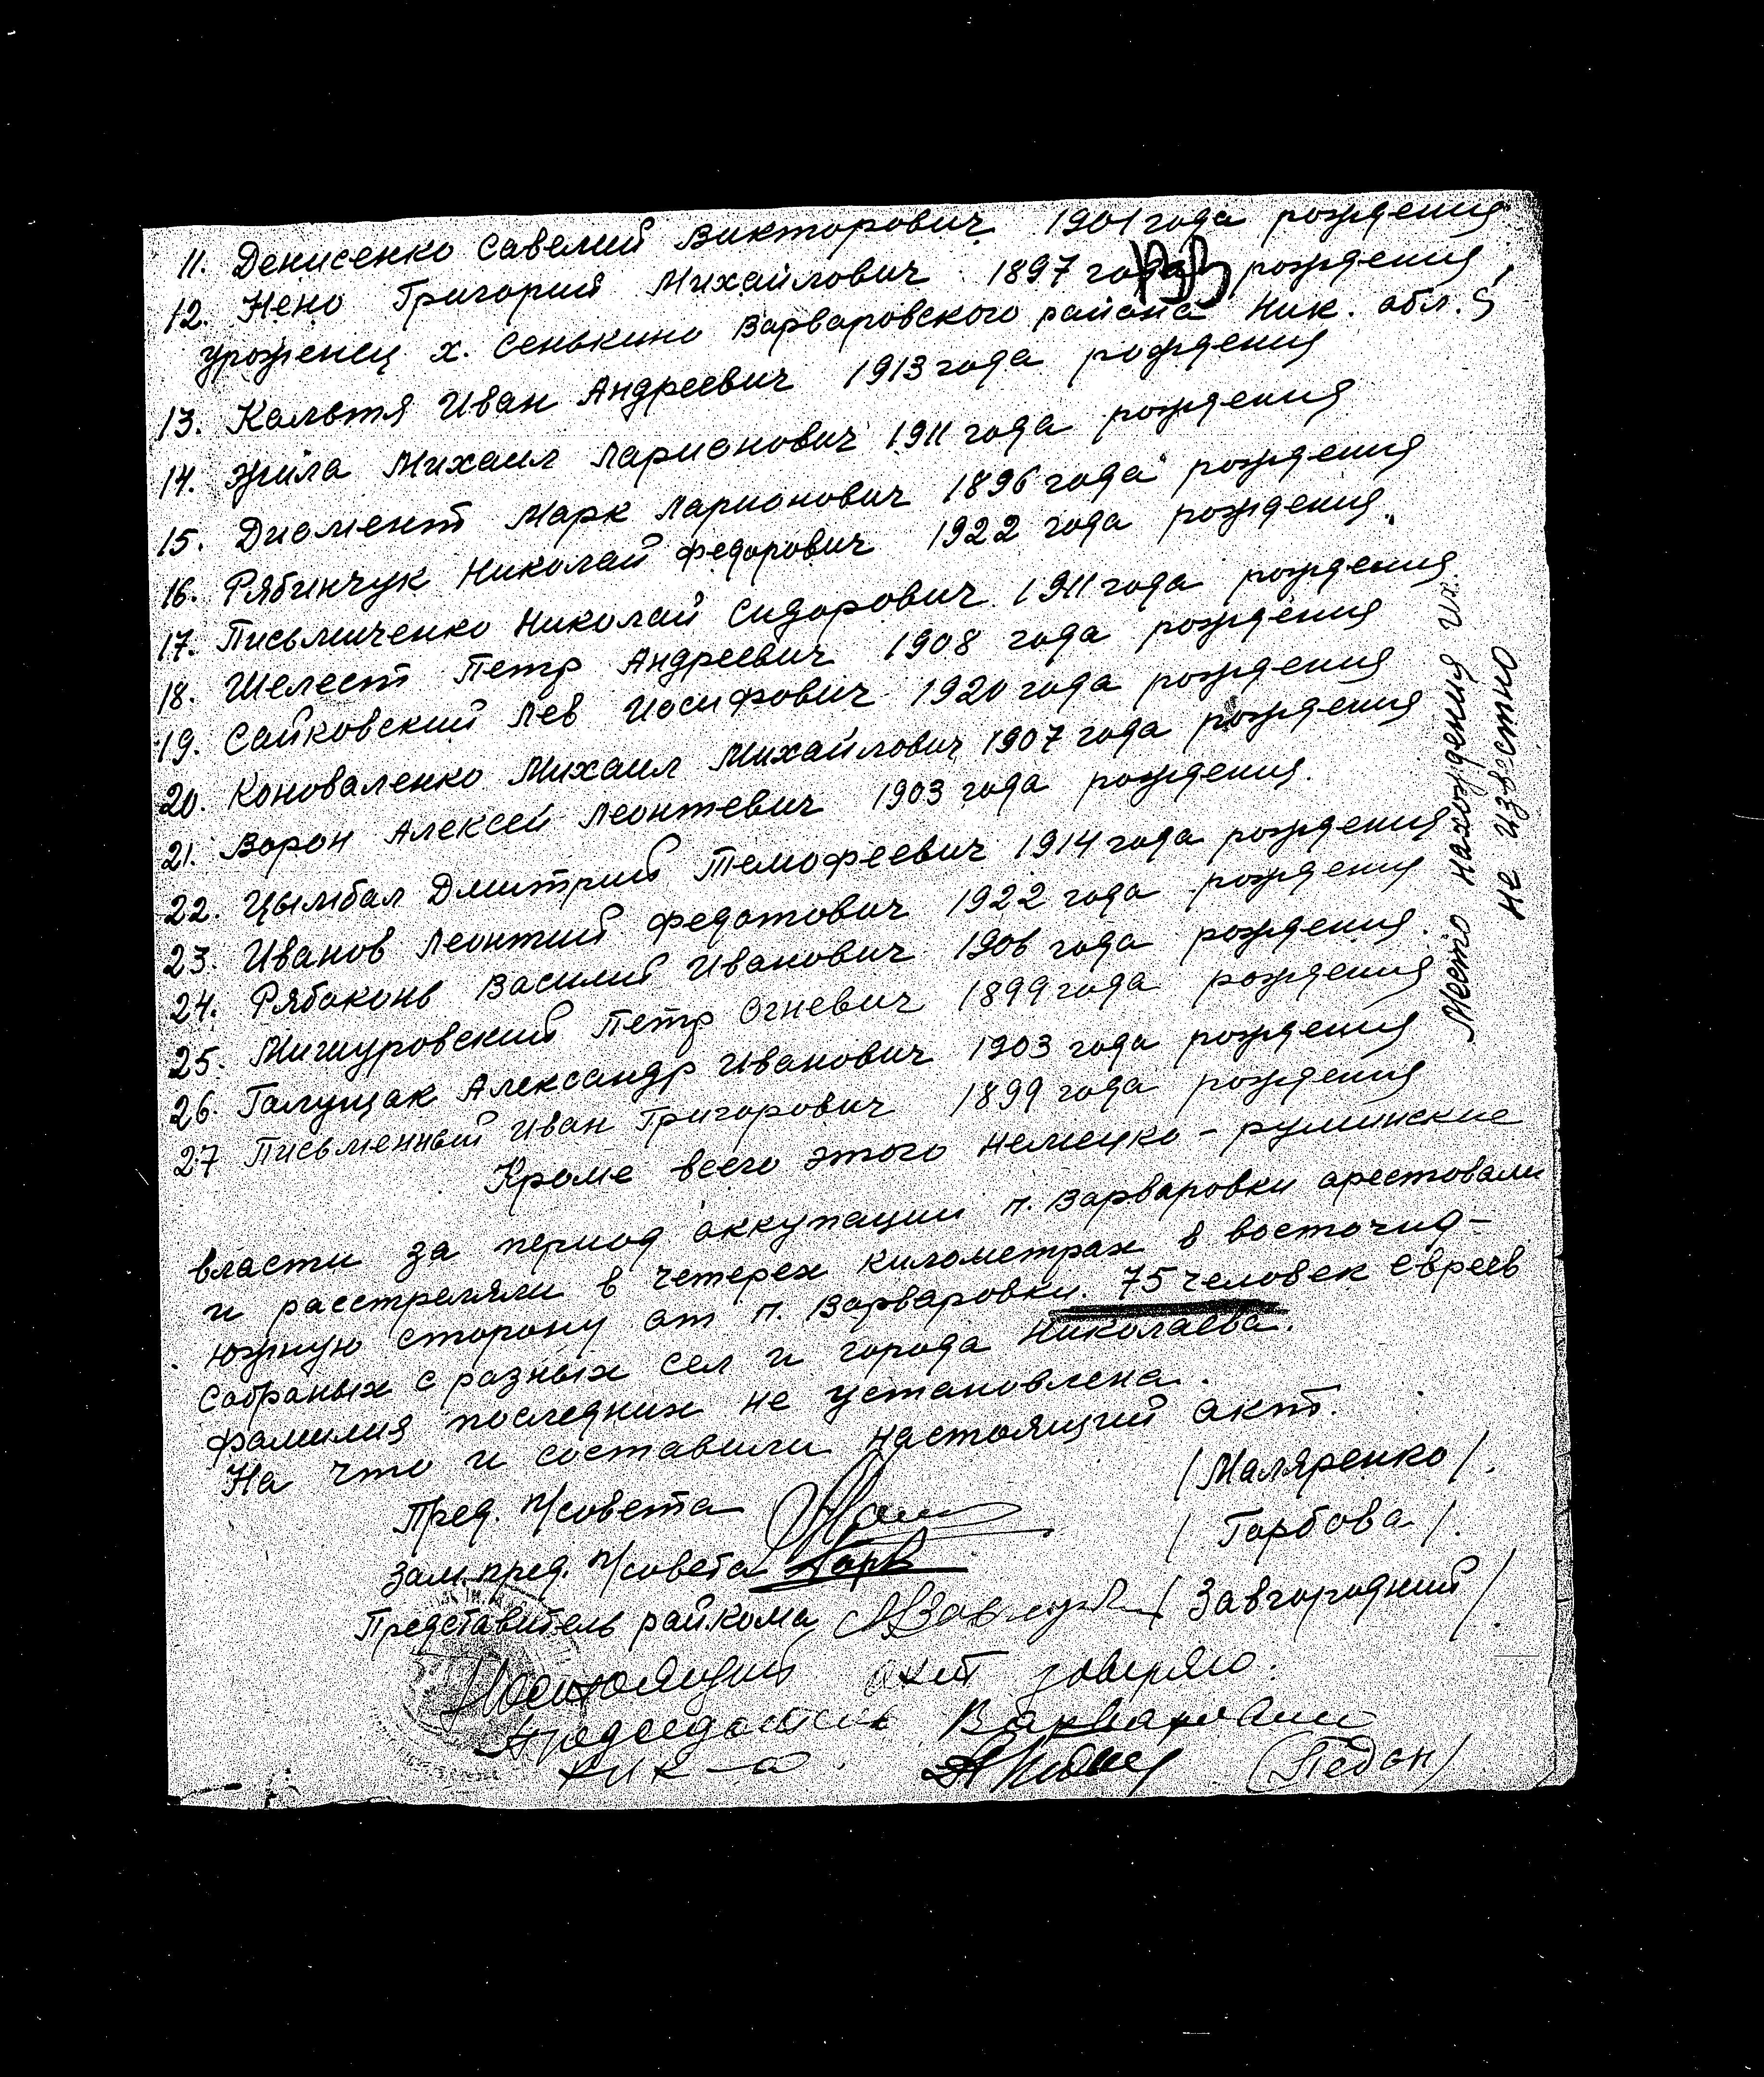 11. Денисенко Савелий Викторович 1901 года рождения
12. Нено Григорий Михайлович 1897 года рождения,
уроженец х. Сенькино Варваровского района Ник. обл.
13. Кальтя Иван Андреевич 1913 года рождения
14. Жила Михаил Ларионович 1911 года рождения
15. Диомент Марк Ларионович 1896 года рождения
16. Рябинчук Николай Федорович 1922 года рождения.
17. Письмиченко Николай Сидорович 1911 года рождения
18. Шелест Петр Андреевич 1908 года рождения
19. Сайковский Лев Иосифович 1920 года рождения
20. Коноваленко Михаил Михайлович 1907 года рождения
21. Ворон Алексей Леонтевич 1903 года рождения.
22. Цымбал Дмитрий Темофеевич 1914 года рождения
23. Иванов Леонтий Федотович 1922 года рождения
24. Рябаконь Василий Иванович 1906 года рождения.
25. Мишуровский Петр Огневич 1899 года рождения
26. Галущак Александр Иванович 1903 года рождения
27 Письменный Иван Григорович 1899 года рождения
Место нахождения их
не известно
Кроме всего этого немецко-румынские
власти за период аккупации п. Варваровки арестовали
и расстреляли в четерех километрах в восточно-
южную сторону от п. Варваровки. 75 человек евреев
собраных с разных сел и города Николаева.
фамилия последних не установлена.
На что и составили настоящий акт.
Пред. п/совета /Маляренко/.
Зам. пред. п/совета Горб /Горбова/.
Представитель райкома /Завгородний/.
Настоящий акт заверяю.
Председатель Варваровки
(Педан/